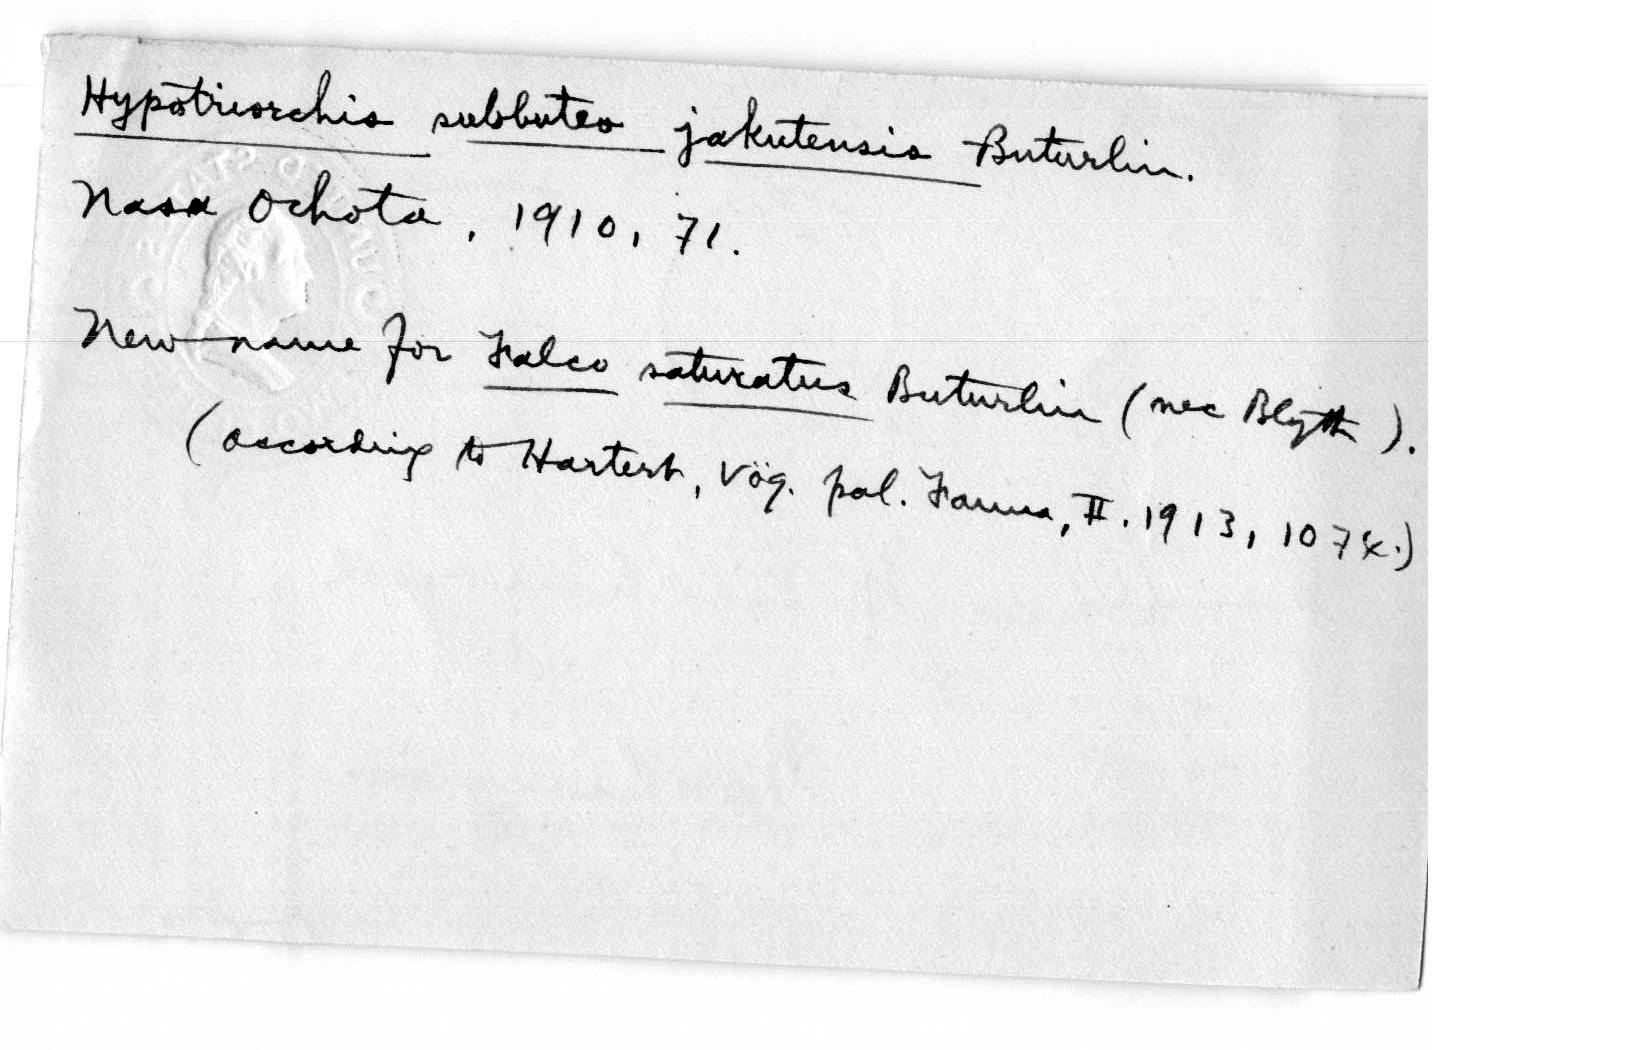 Hypotriorchis subbuteo jakutensis Buturlin.
Nasa Ochota, 1910, 71.
New name for Falco saturatus Buturlin (nec Blyth).
(according to Hartert, Vög. pal. Fauna, II. 1913, 1074.)